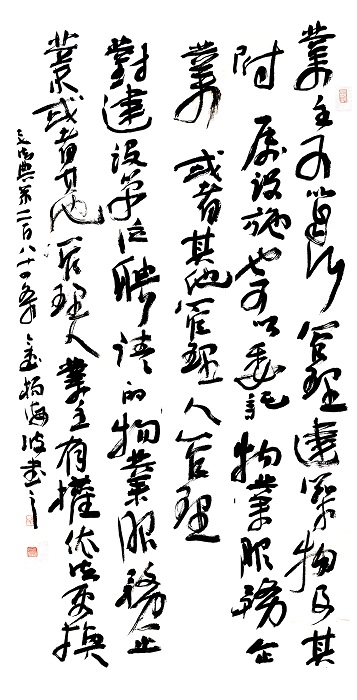 業主可以自行管理建築物及其
附属設施也可以委託物業服務企
業或者其他管理人管理
對建設单位聘請的物業服務企
業或者其他管理人業主有權依法更換
民法典第二百八十四条 海波書